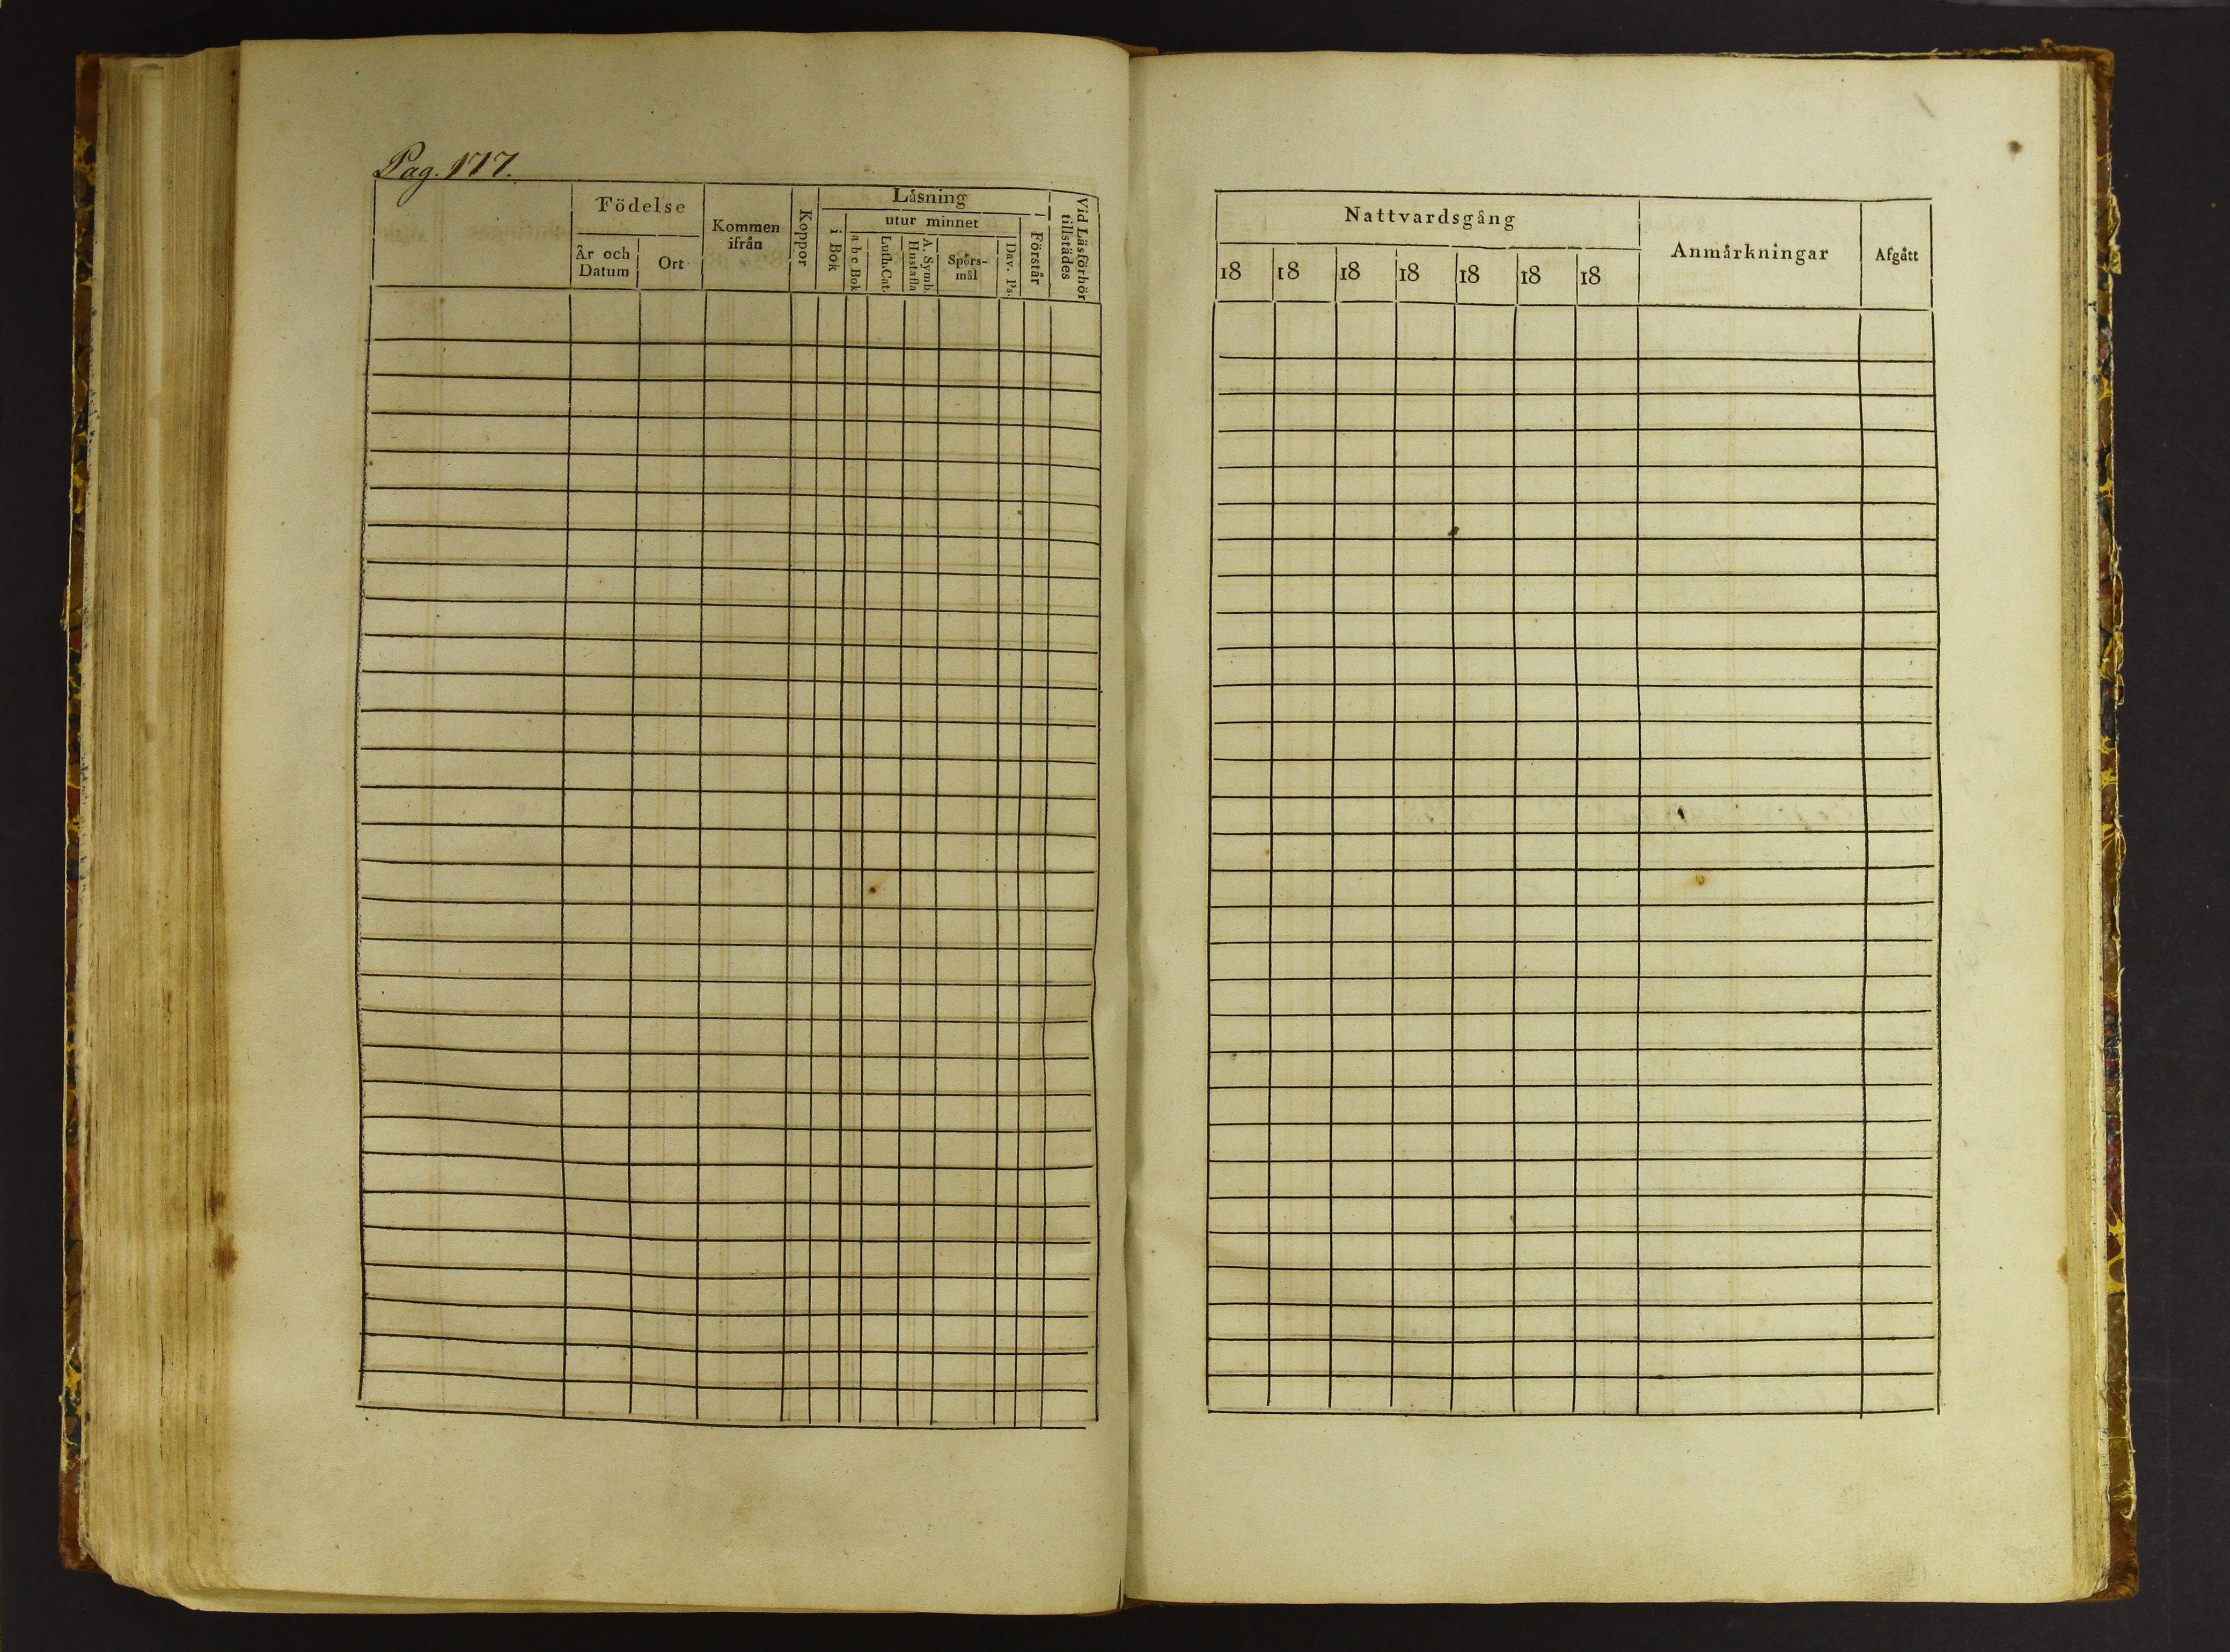 Pag. 177.
Födelse
År och
Datum
Ort
Kommen
ifrån
Koppor
Låsning
i Bok
utur minnet
a b c Bok
Luth. Cat.
A. Symb.
Hustafla
Spörs-
mål
Dav. Ps.
Förstår
Vid Läsförhör
tillstädes
Nattvardsgång
18 18 18 18 18 18 18
Anmårkningar
Afgått